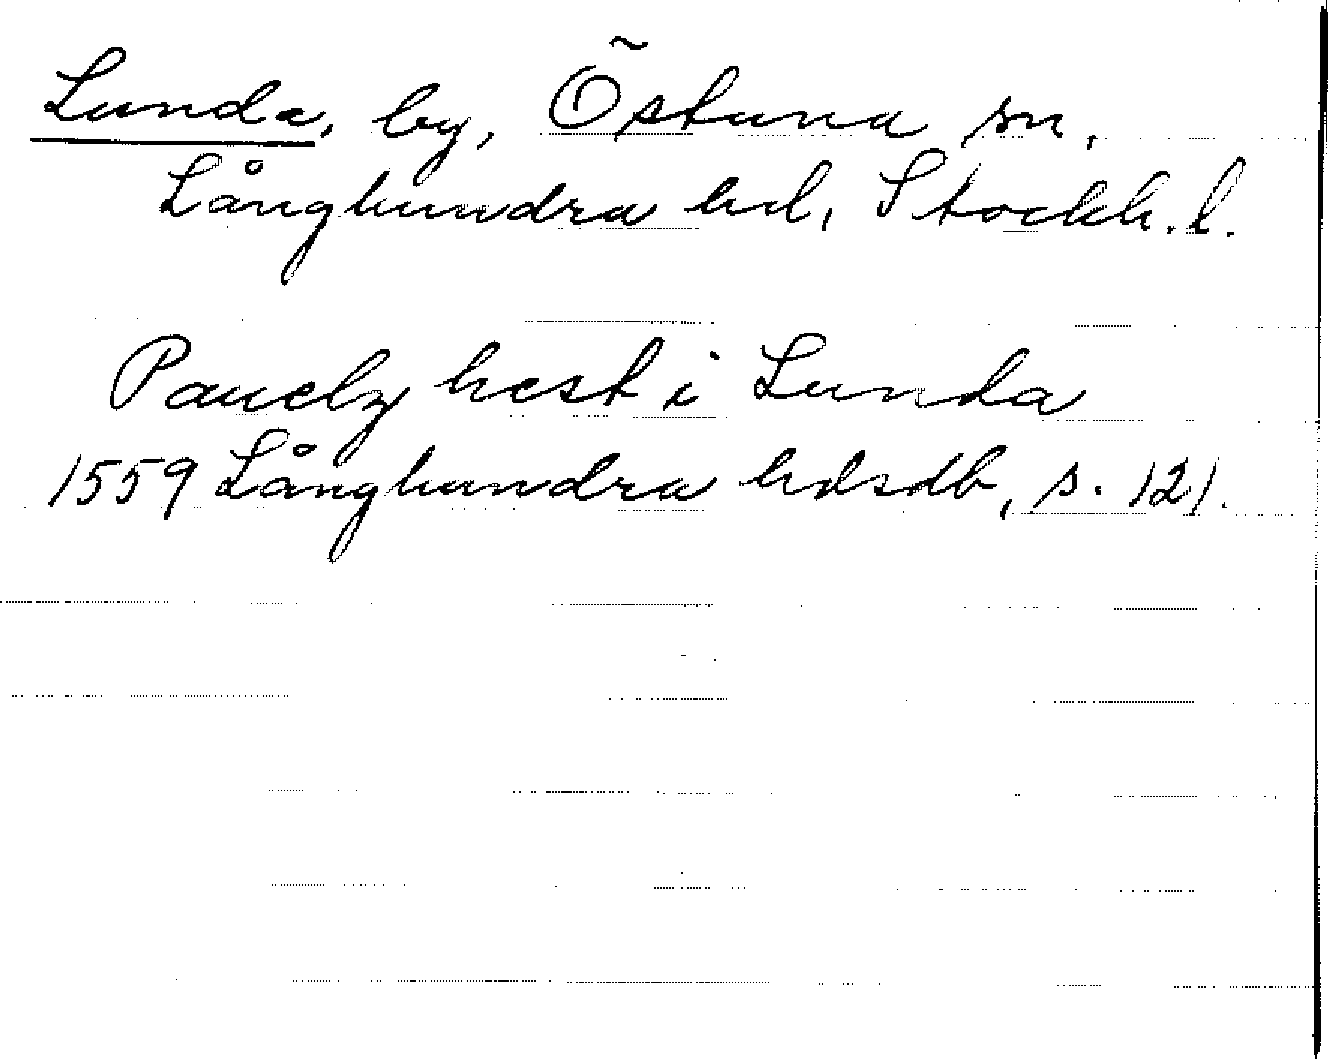 Lunda, by, Östuna sn,
Långhundra hd, Stockh. l.
Pauelz hest i Lunda
1559 Långhundra hdsdb, s. 121.